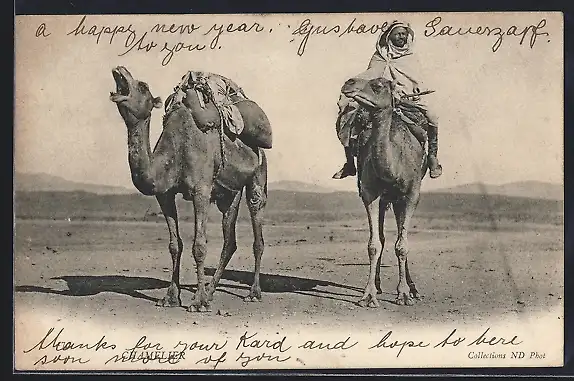 a happy new year. Gustave Sauerzapf.
to you.
thanks for your Kard and hope to here
soon more of you
CHAMELIER
Collections ND Phot